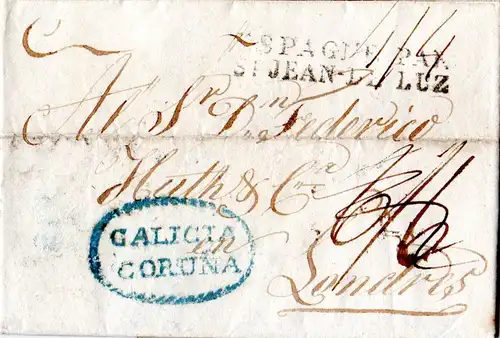 ESPAGNE PAR
ST JEAN-DE LUZ
Al Sr Dn Federico
Huth & Ca
GALICIA
CORUÑA
en
Londres